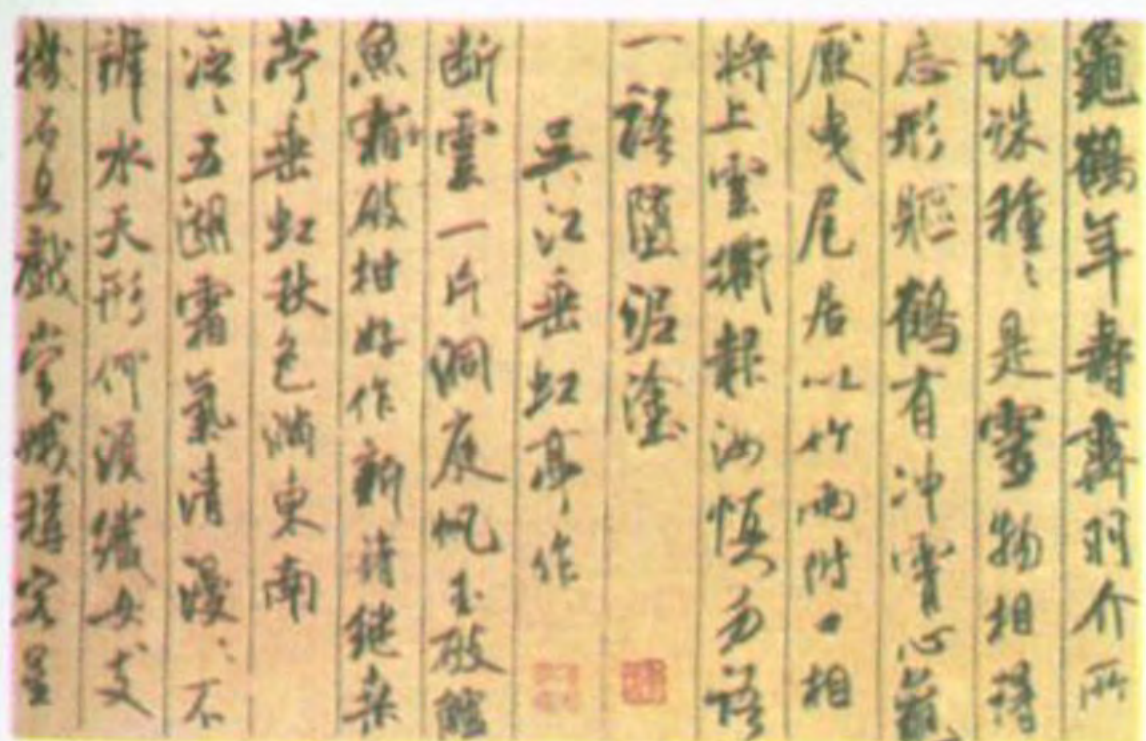 龜鶴年壽齊羽介所
託殊種〻是靈物相得
忘形軀鶴有冲霄心龜
厭曳尾居以竹兩附口相
將上雲衢報汝慎勿語
一語墮泥塗
吳江垂虹亭作
断雲一片洞庭帆玉破鱸
魚霜破柑好作新詩継桒
苧垂虹秋色满東南
泛〻五湖霜氣清漫〻不
辨水天形何須織女支
機石且戲常娥稱客星